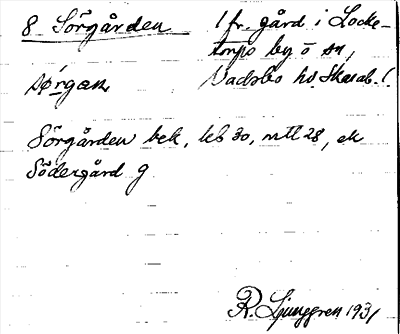 8 Sörgården
1 fr. gård i Locke-
torps by o sn,
Vadsbo hd. Skarab. l.
sørgan
Sörgården bek, leb 30, mtl 28, ek
Södergård g
R. Ljunggren 1931